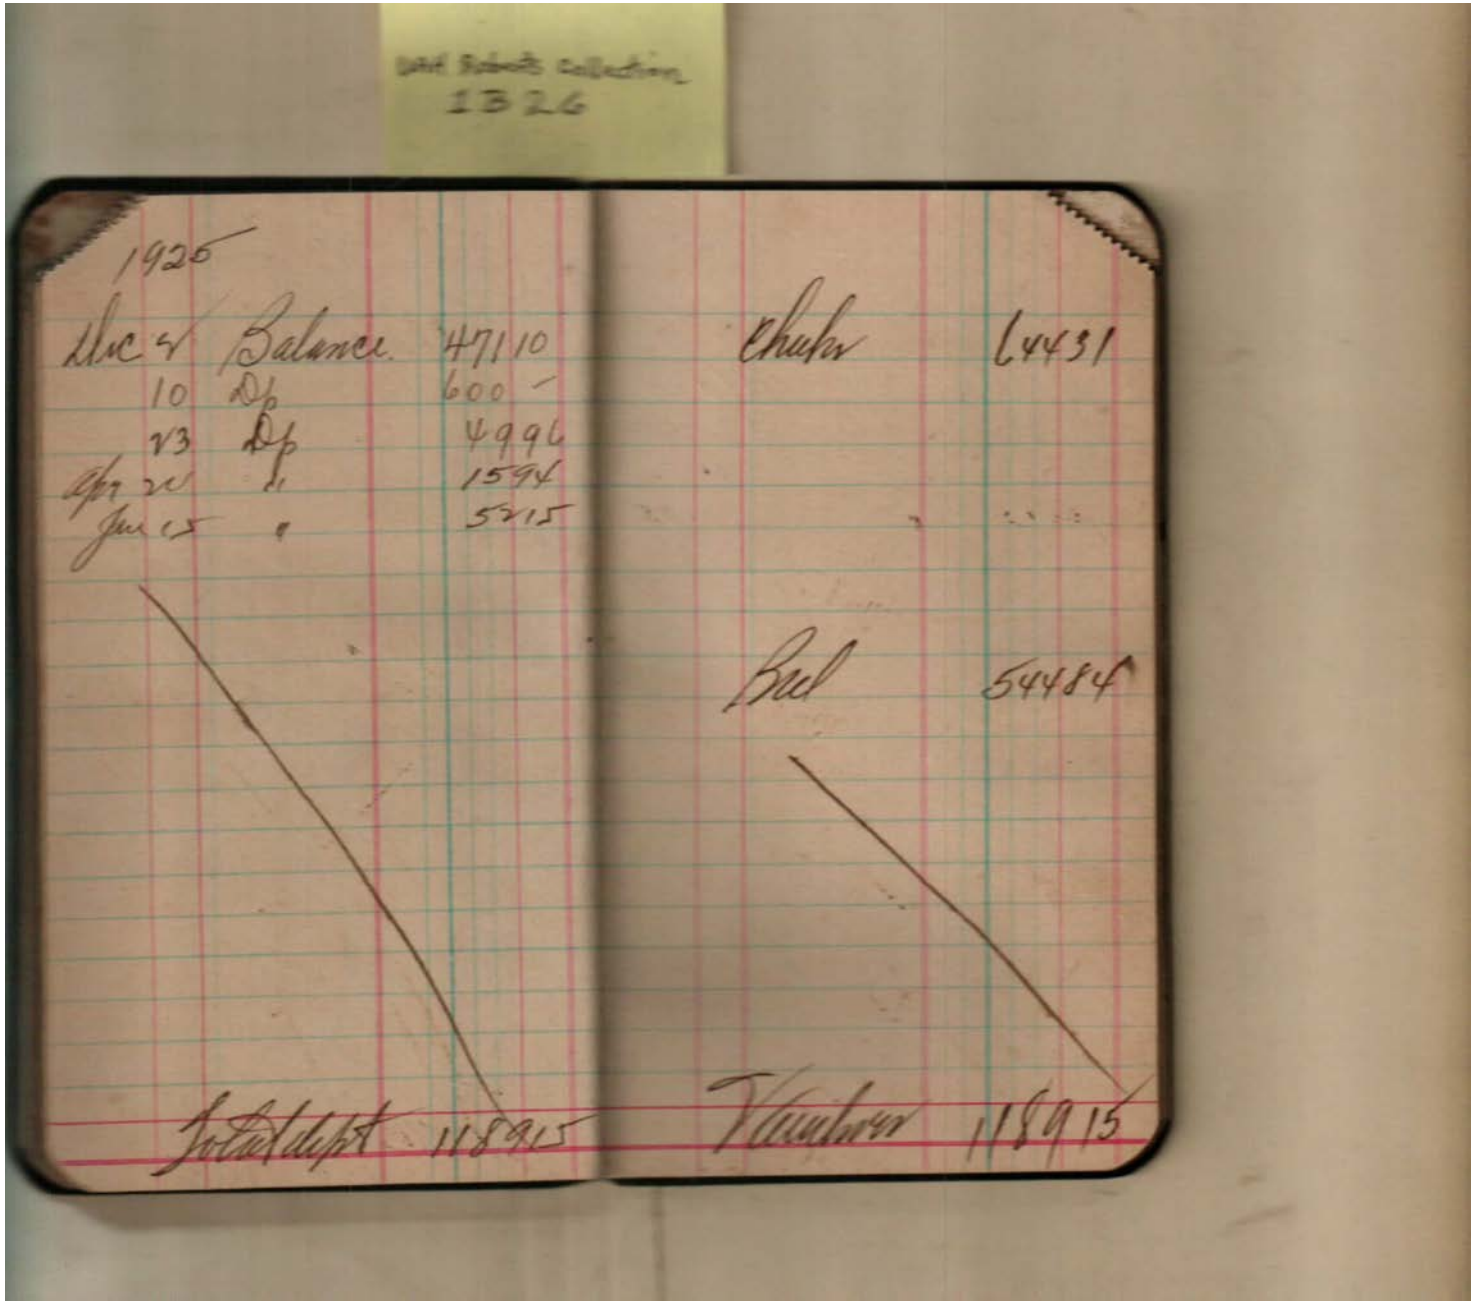 UAH Roberts Collection
1B26
1925
Dec Balance. 47110
10 Dp 600 –
23 Dp 4996
Apr " 1594
Jun 15 " 5215
Total dept 118915
Checks 64431
Bal 54484
Vouchers 118915